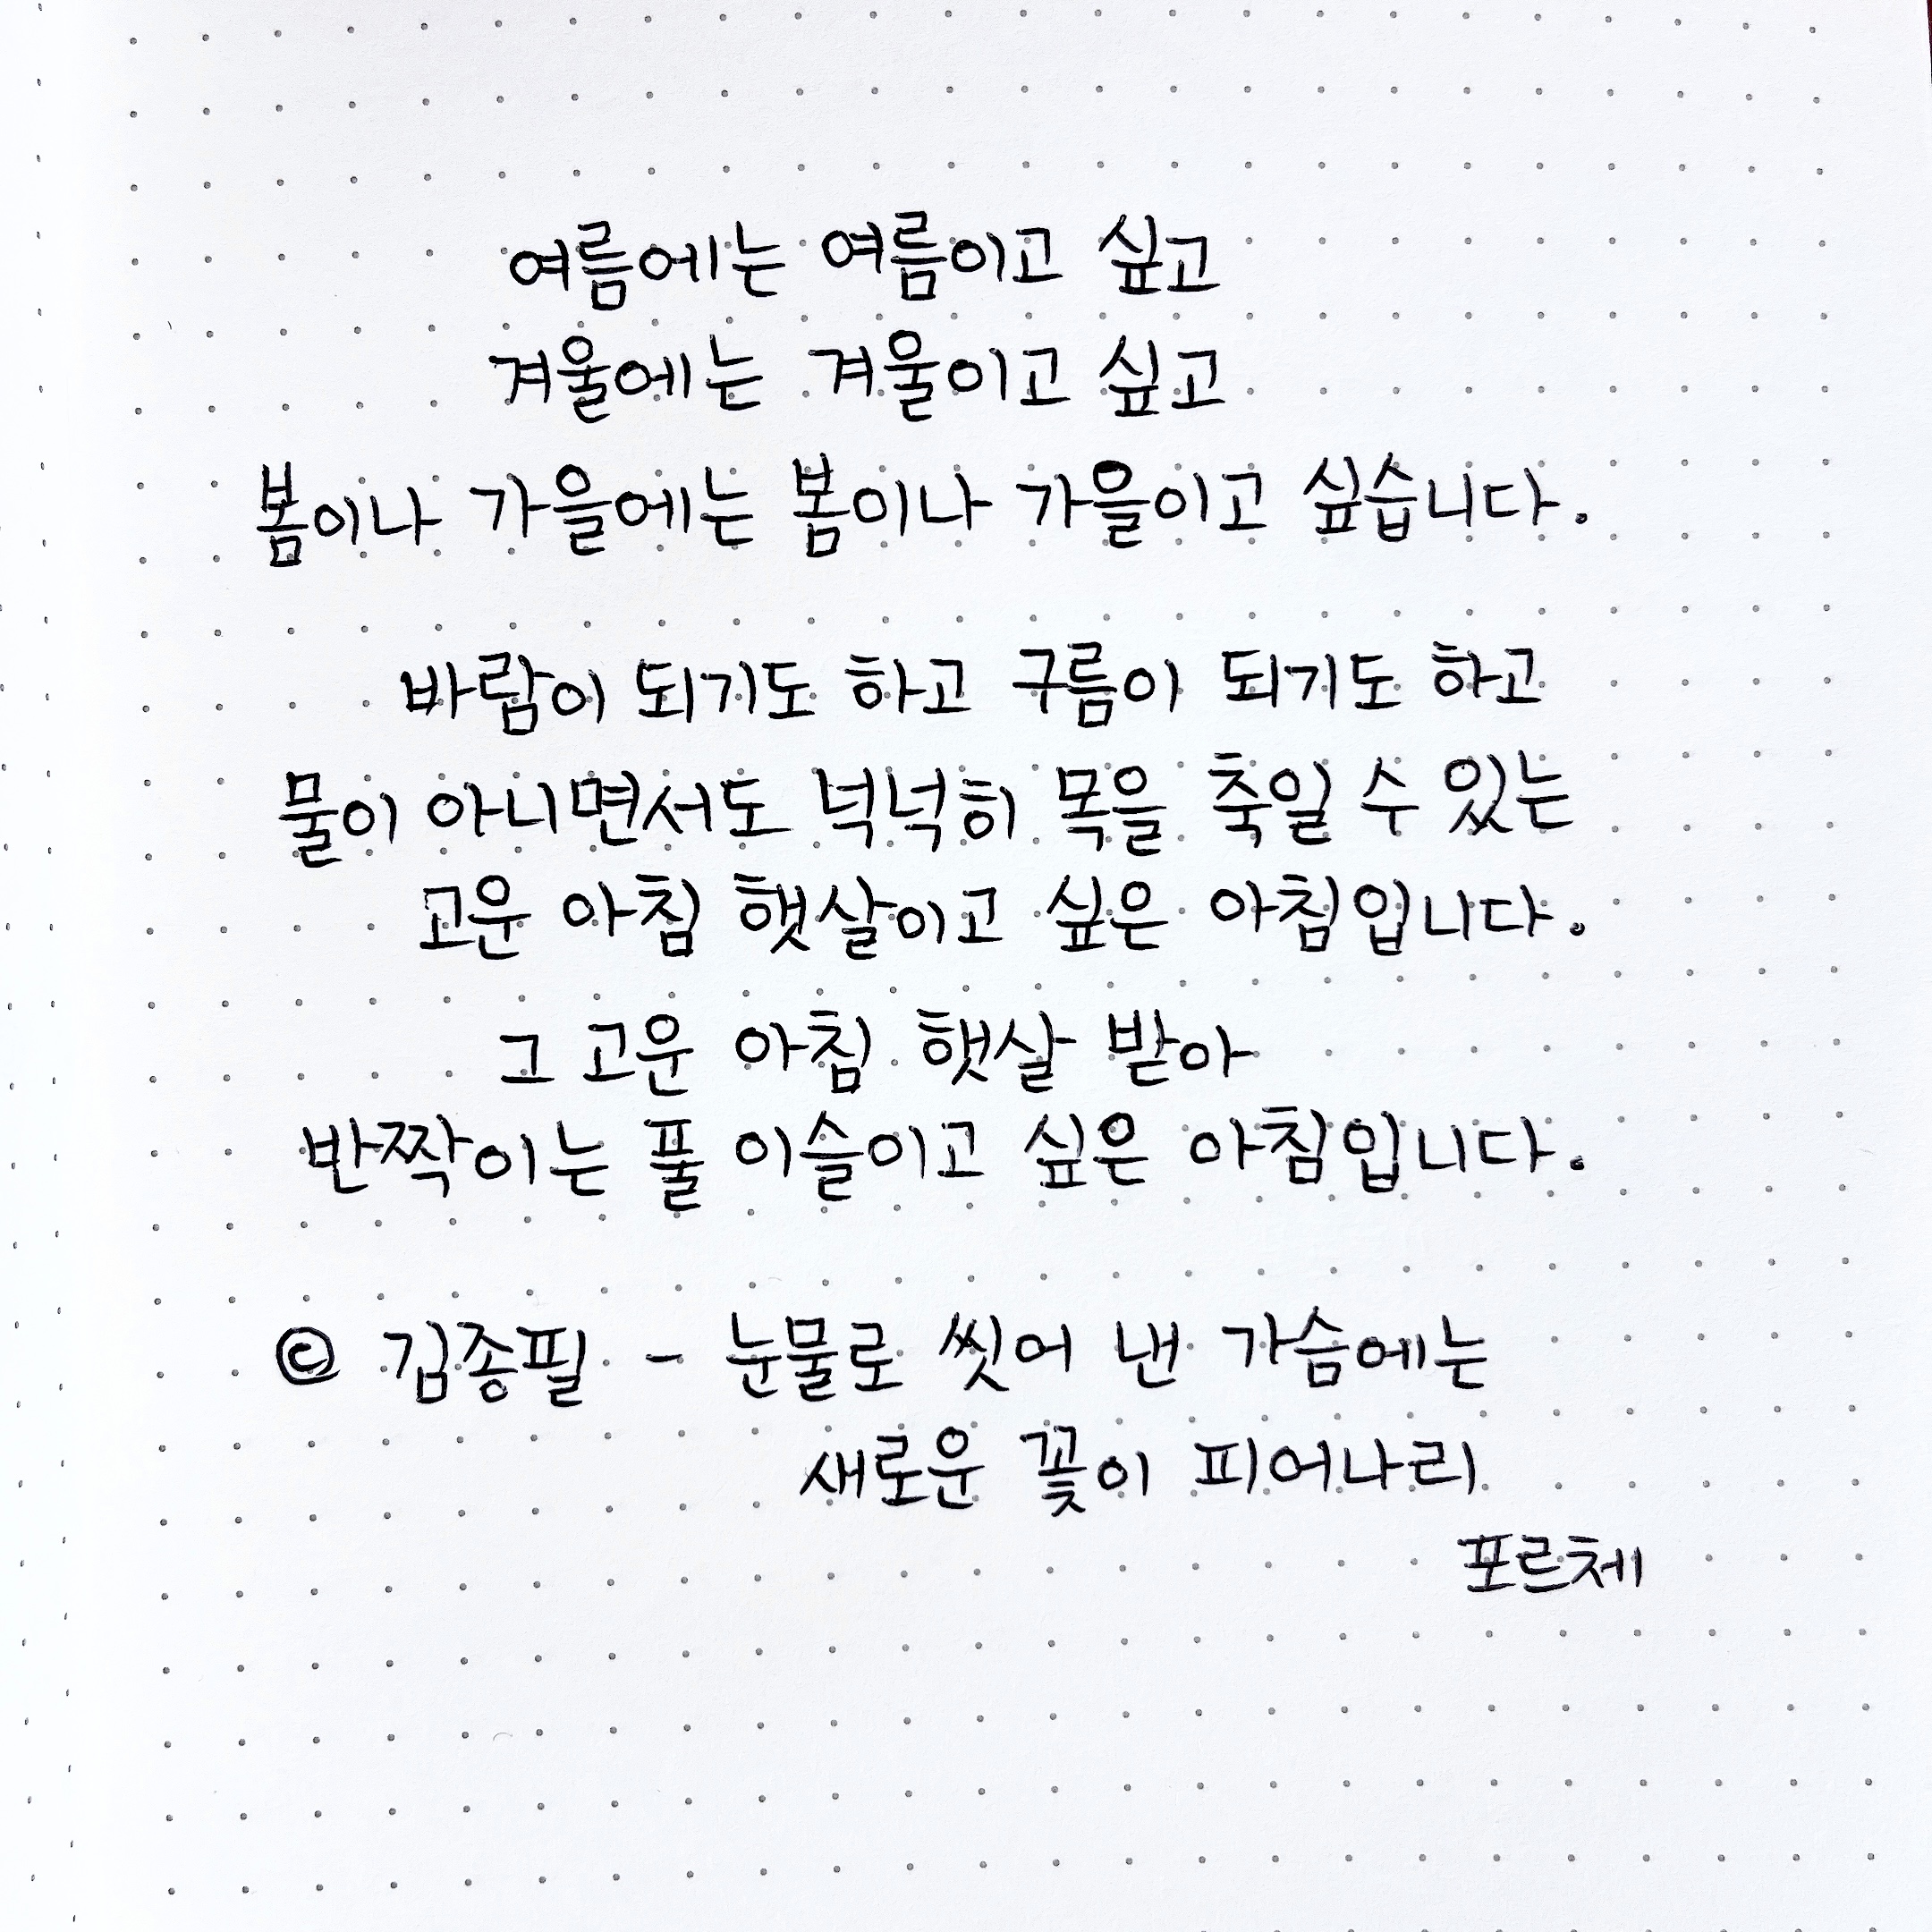 여름에는 여름이고 싶고
겨울에는 겨울이고 싶고
봄이나 가을에는 봄이나 가을이고 싶습니다.
바람이 되기도 하고 구름이 되기도 하고
물이 아니면서도 넉넉히 목을 축일 수 있는
고운 아침 햇살이고 싶은 아침입니다.
그 고운 아침 햇살 받아
반짝이는 풀 이슬이고 싶은 아침입니다.
© 김종필 - 눈물로 씻어 낸 가슴에는
새로운 꽃이 피어나리
포르체